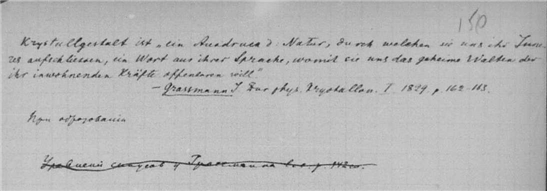 150
Krystallgestalt ist „ein Ausdruck d. Natur, durch welchen sie uns ihr Inne-
res aufschliessen, ein Wort aus ihrer Sprache, womit sie uns das geheime Walten der
ihr inwohnenden Kräfte offenbaren will"
— Grassmann J. Zur phys. Krystallon. I. 1829 p. 162-163.
При образовании
Уравнений синусов у Грассмана